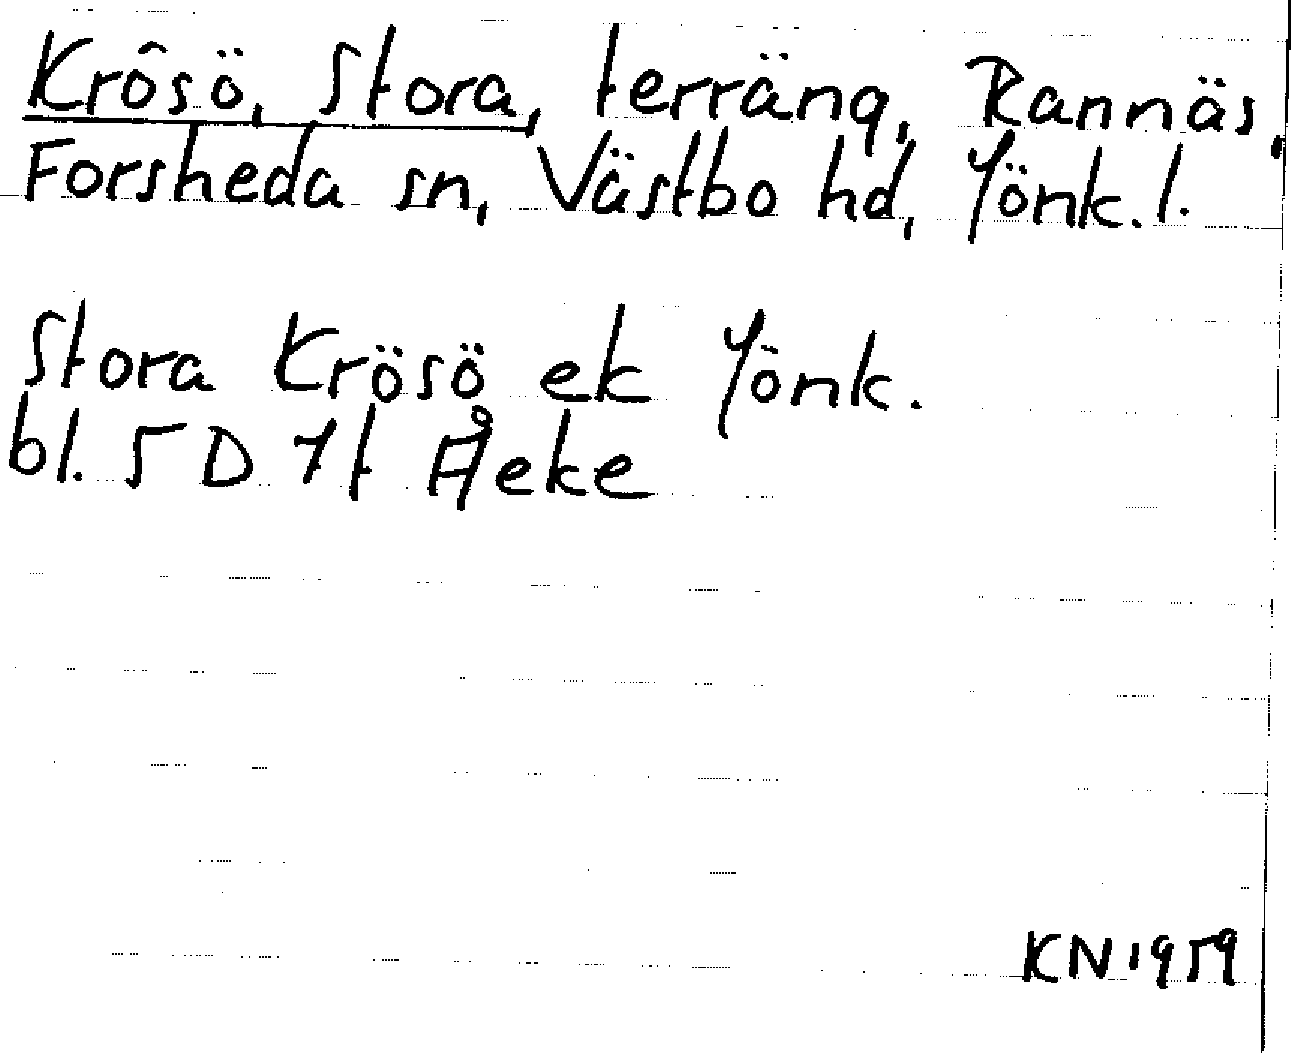 Krösö, Stora, terräng, Rannäs,
Forsheda sn, Västbo hd, Jönk. l.
Stora Krösö ek Jönk.
bl. 5 D 7f Åeke
KN 1959